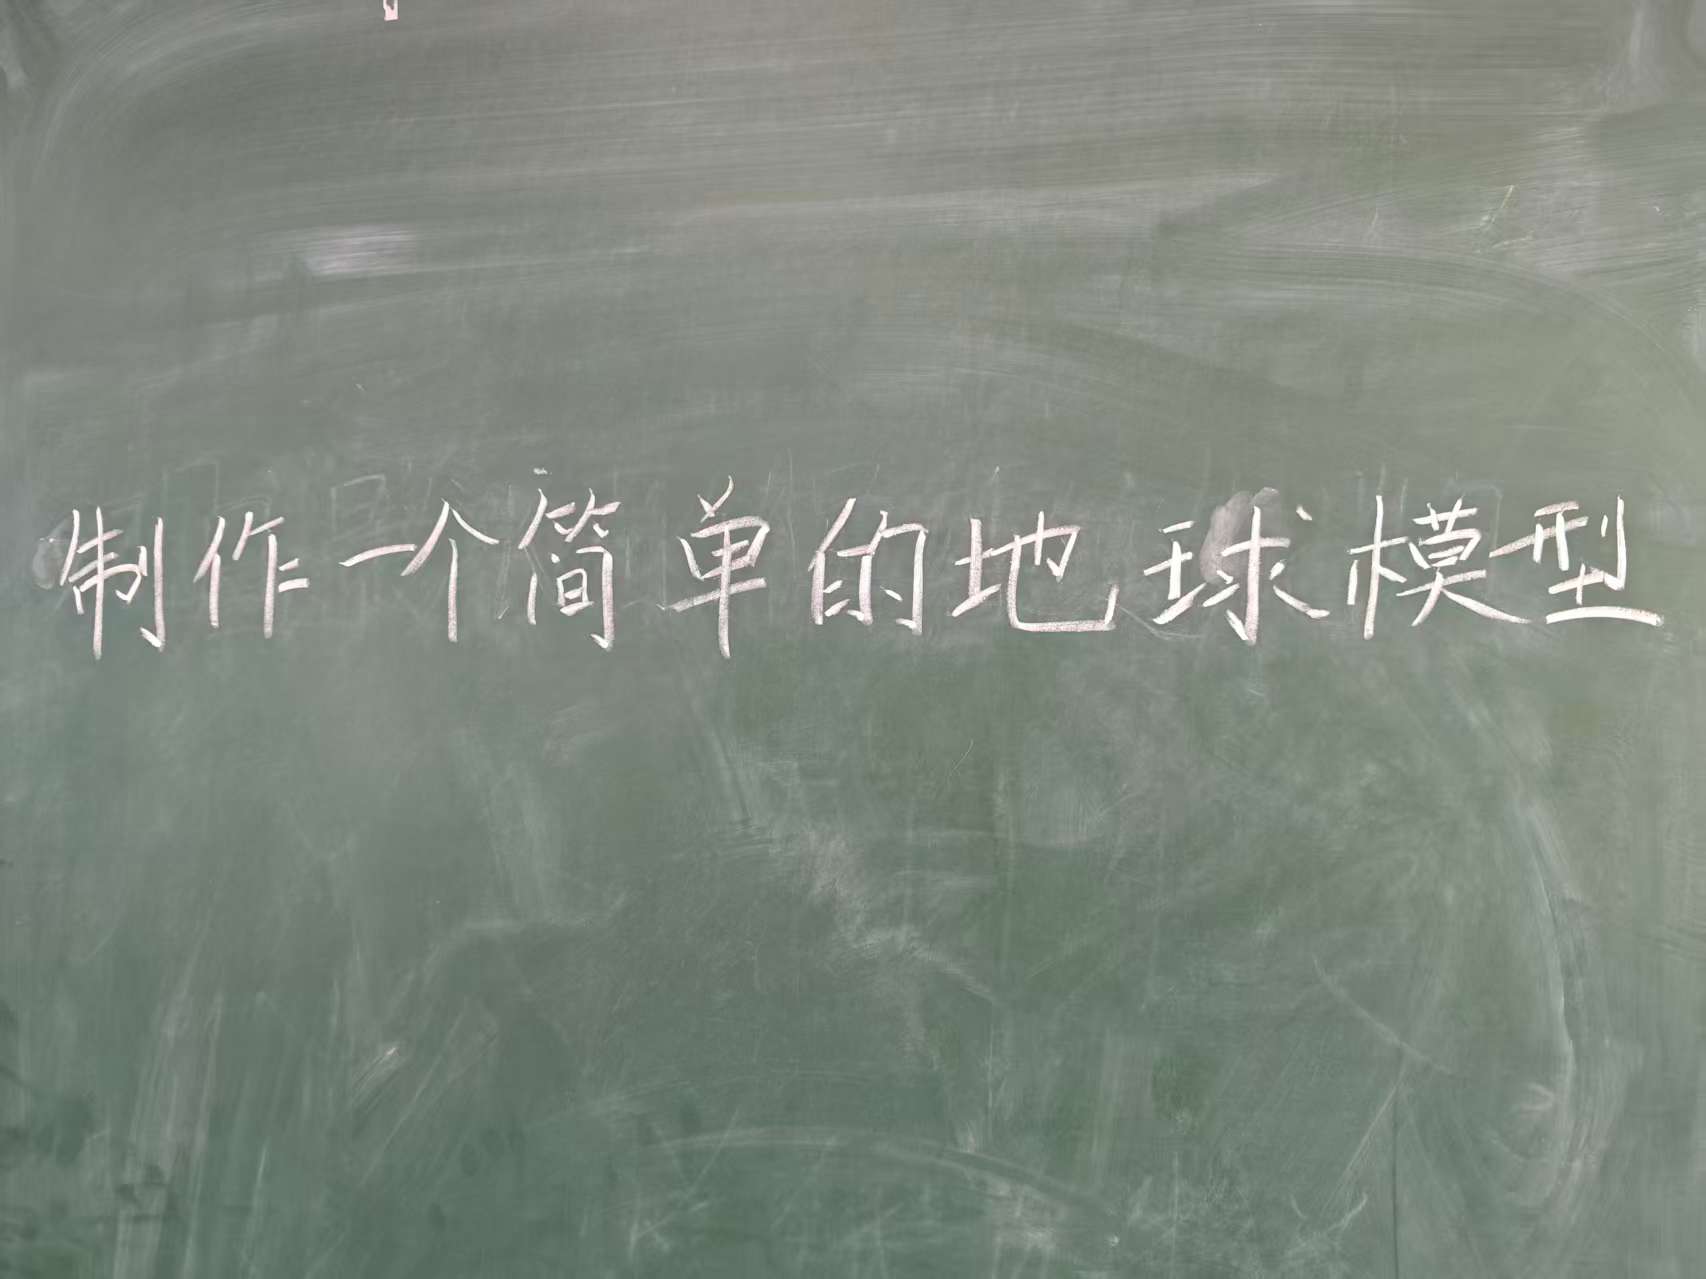 制作一个简单的地球模型